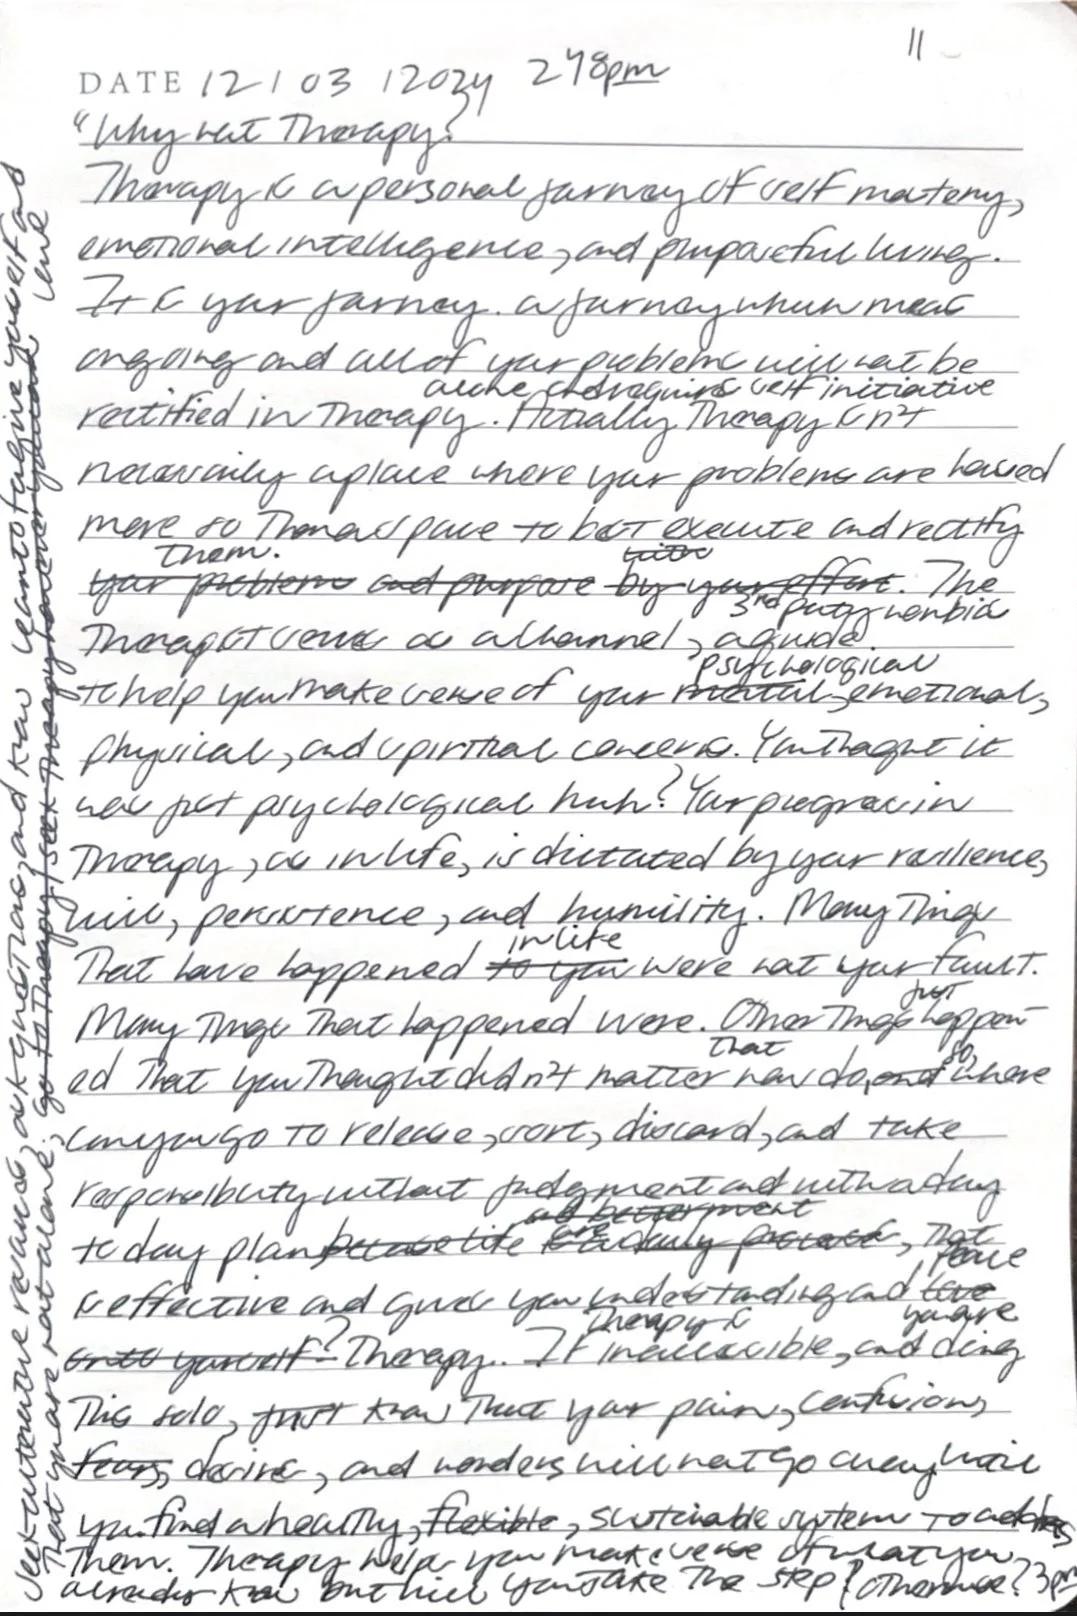 11
DATE 12/03/2024 248pm
"Why not Therapy?
Therapy is a personal journey of self mastery,
emotional intelligence, and purposeful living.
It is your journey. a journey
ongoing and all of your problems will not be
alone and requires self initiative
rectified in Therapy. Actually Therapy isn't
necessarily a place where your problems are housed
more so Then a space to execute and rectify
Them. with
your problems and purpose by your effort. The
3rd party nonbias
Therapist serves as a channel, a guide
psychological
to help you make sense of your mental, emotional,
physical, and spiritual concerns. You thought it
was just psychological huh? Your progress in
Therapy, as in life, is dictated by your resilience,
will, persistence, and humility. Many Things
in life
That have happened to you were not your fault.
just
Many Things That happened were. Other Things happen-
that so,
ed That you Thought didn't matter now do, and where
can you go to release, sort, discard, and take
responsibility without judgment and with a day
and betterment
to day plan because life is a daily process, That
peace
is effective and gives you understanding and love
Therapy is you are
onto yourself? Therapy.. If inaccessible, and doing
This solo, just know That your pain, confusions,
fears, desires, and wonders will not go away until
you find a healthy, flexible, sustainable system to address
Them. Therapy helps you make sense of what you
already know but will you take The step? Otherwise? 3pm
Seek alternative resources, ask questions, and know learn to forgive yourself and
That you are not alone; go to Therapy/seek Therapy however you can. love